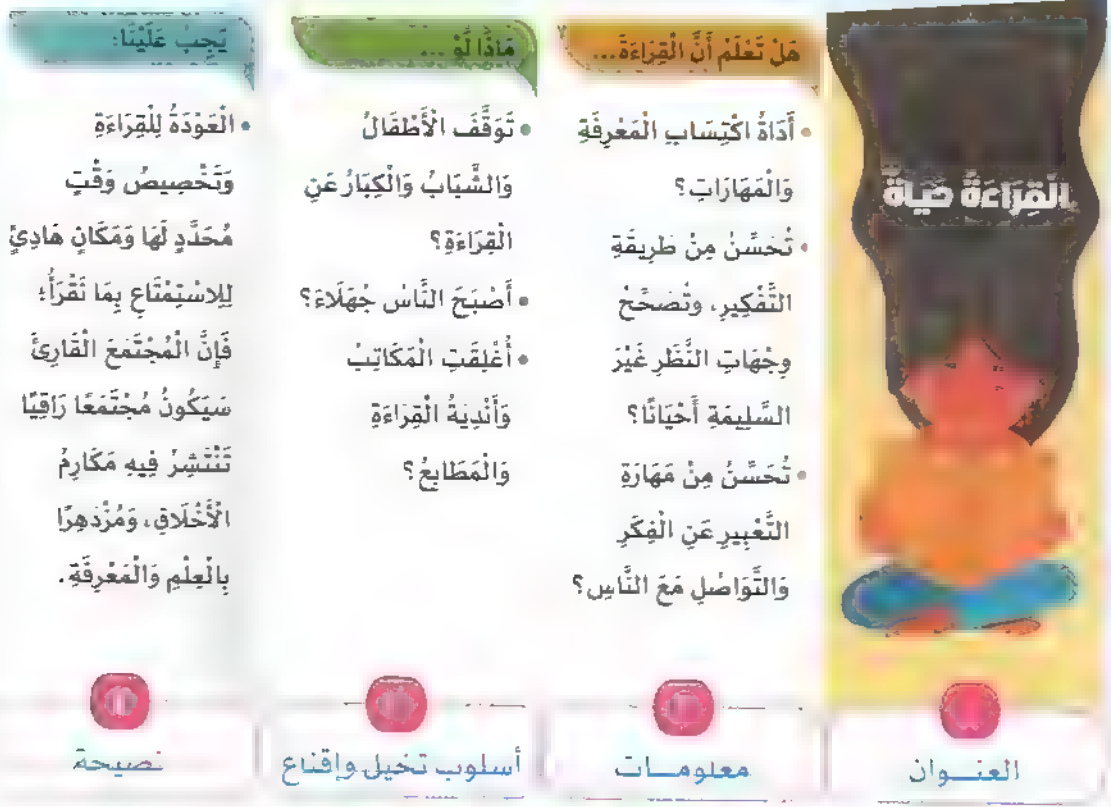 الْقِرَاءَةُ حَيَاةٌ
هَلْ تَعْلَمُ أَنَّ الْقِرَاءَةَ...
• أَدَاةُ اكْتِسَابِ الْمَعْرِفَةِ
وَالْمَهَارَاتِ؟
• تُحَسِّنُ مِنْ طَرِيقَةِ
التَّفْكِيرِ، وتُصَحِّحُ
وِجْهَاتِ النَّظَرِ غَيْرَ
السَّلِيمَةِ أَحْيَانًا؟
• تُحَسِّنُ مِنْ مَهَارَةِ
التَّعْبِيرِ عَنِ الْفِكَرِ
وَالتَّوَاصُلِ مَعَ النَّاسِ؟
مَاذَا لَوْ ...
• تَوَقَّفَ الْأَطْفَالُ
وَالشَّبَابُ وَالْكِبَارُ عَنِ
الْقِرَاءَةِ؟
• أَصْبَحَ النَّاسُ جُهَلَاءَ؟
• أُغْلِقَتِ الْمَكَاتِبُ
وَأَنْدِيَةُ الْقِرَاءَةِ
وَالْمَطَابِعُ؟
يَجِبُ عَلَيْنَا:
• الْعَوْدَةُ لِلْقِرَاءَةِ
وَتَخْصِيصُ وَقْتٍ
مُحَدَّدٍ لَهَا وَمَكَانٍ هَادِئٍ
لِلِاسْتِمْتَاعِ بِمَا نَقْرَأُ؛
فَإِنَّ الْمُجْتَمَعَ الْقَارِئَ
سَيَكُونُ مُجْتَمَعًا رَاقِيًا
تَنْتَشِرُ فِيهِ مَكَارِمُ
الْأَخْلَاقِ، وَمُزْدَهِرًا
بِالْعِلْمِ وَالْمَعْرِفَةِ.
العنـــوان
معلومـــات
أسلوب تخيل وإقناع
نصيحة